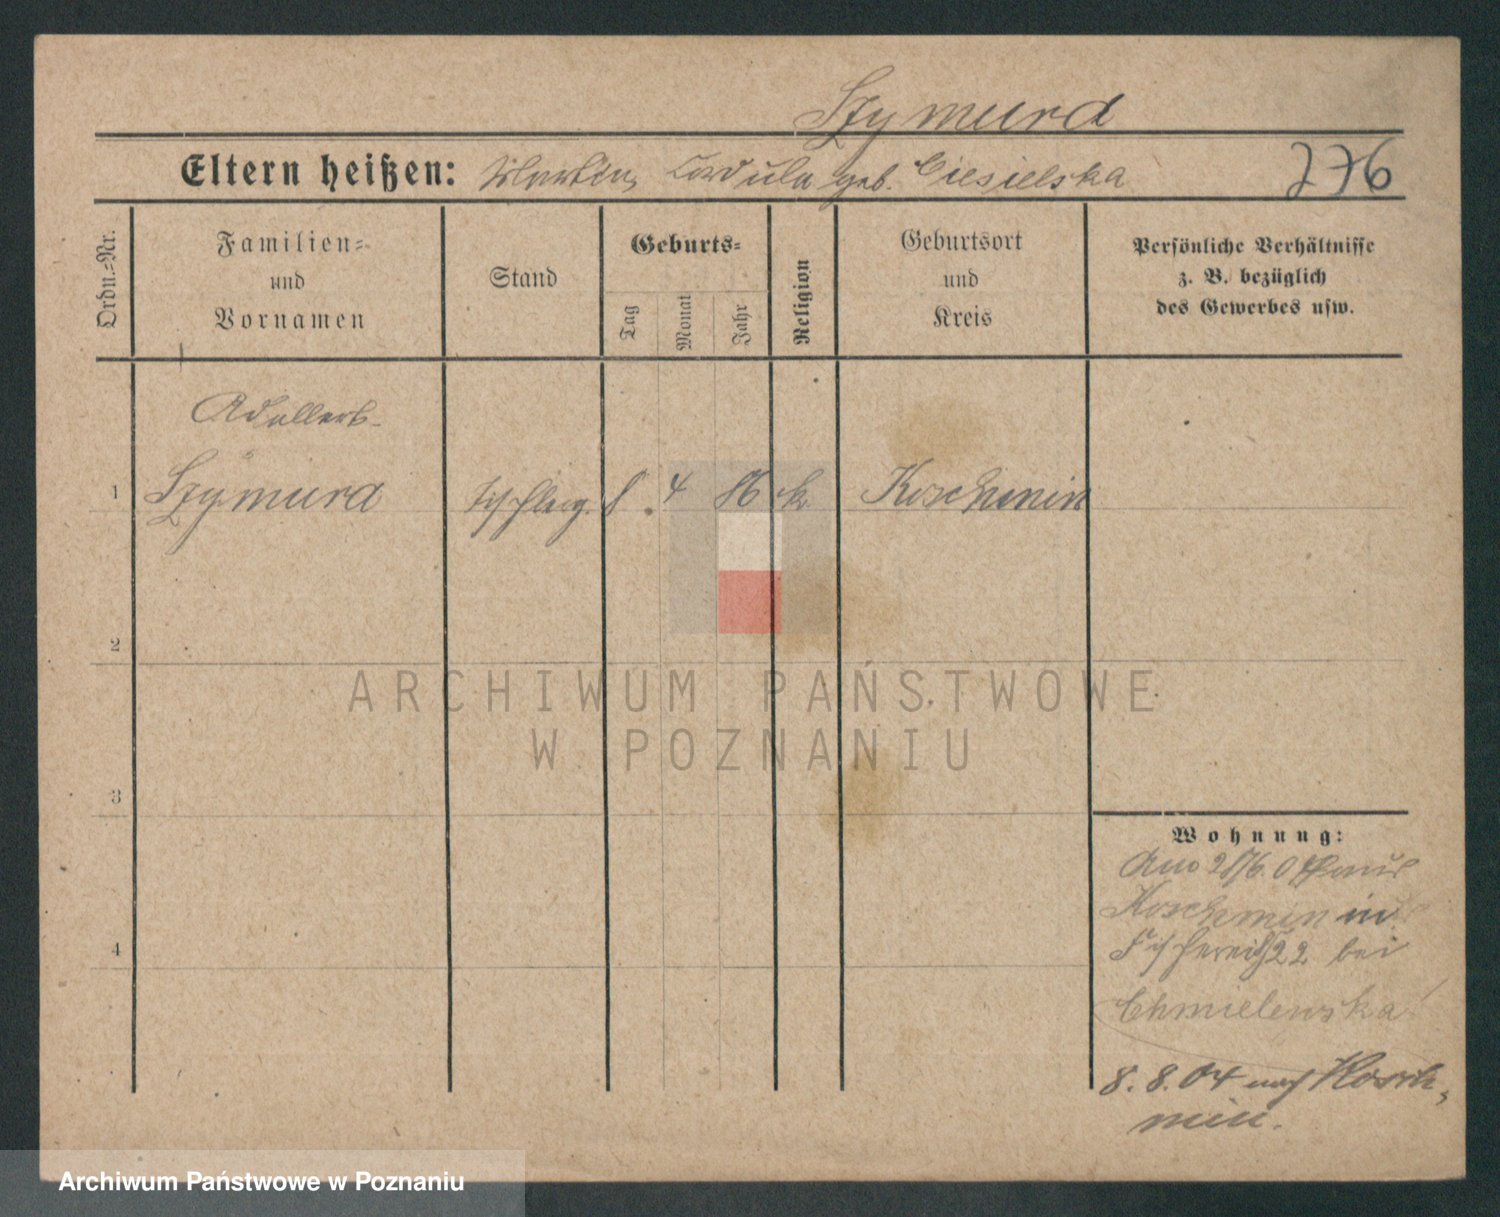 Szymurd
Eltern heißen: Martin, Cordula geb. Ciesielska 276
Ordn.-Nr.
Familien-
und
Vornamen
Stand
Geburts-
Tag
Monat
Jahr
Religion
Geburtsort
und
Kreis
Persönliche Verhältnisse
z. B. bezüglich
des Gewerbes usw.
Adalbert
1 Szymurd 8. 4 86 k. Koschmin
2
3
4
Wohnung:
aus
Koschmin in
Fischerei 22 bei
Chmielewska
8. 8. 04 nach Kosch-
min.
ARCHIWUM PAŃSTWOWE
W POZNANIU
Archiwum Państwowe w Poznaniu